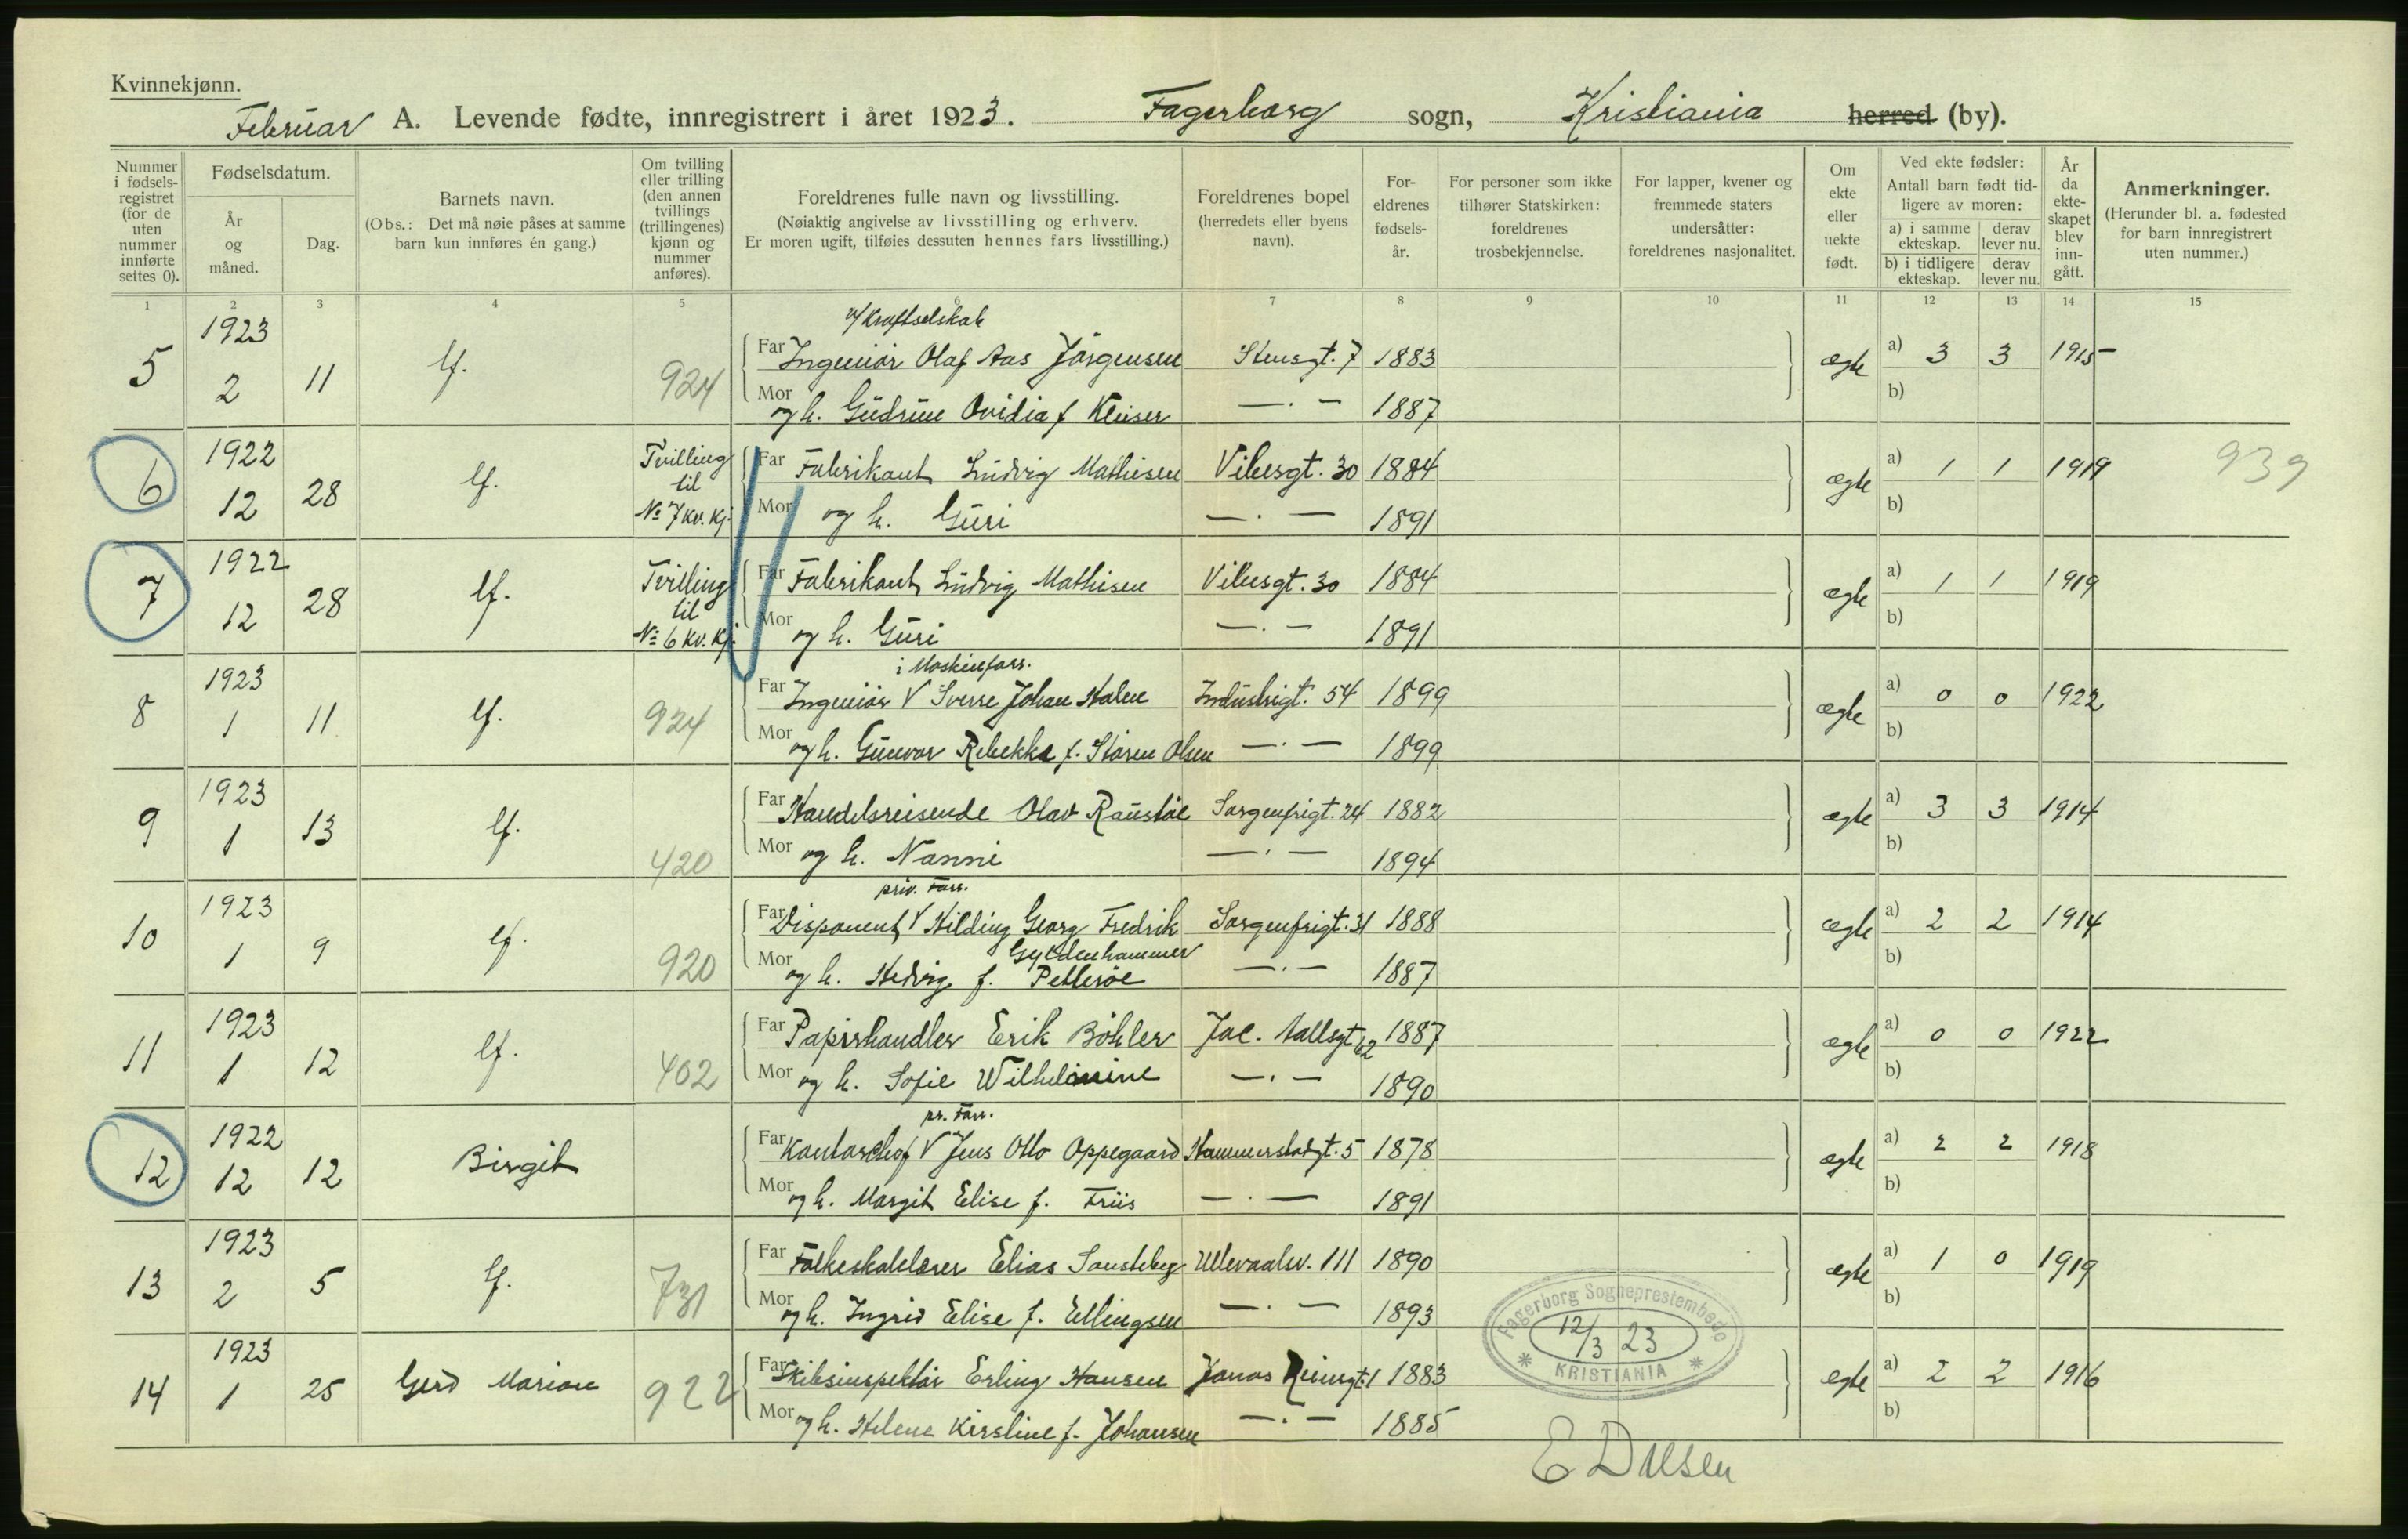 Kvinnekjønn.
Februar A. Levende fødte, innregistrert i året 1923. Fagerborg sogn, Kristiania herred (by).
Nummer i fødsels-registret (for de uten nummer innførte settes 0).
Fødselsdatum.
År og måned.
Dag.
Barnets navn.
(Obs.: Det må nøie påses at samme barn kun innføres én gang.)
Om tvilling eller trilling (den annen tvillings (trillingenes) kjønn og nummer anføres).
Foreldrenes fulle navn og livsstilling.
(Nøiaktig angivelse av livsstilling og erhverv.
Er moren ugift, tilføies dessuten hennes fars livsstilling.)
Foreldrenes bopel (herredets eller byens navn).
For-eldrenes fødsels-år.
For personer som ikke tilhører Statskirken: foreldrenes trosbekjennelse.
For lapper, kvener og fremmede staters undersåtter: foreldrenes nasjonalitet.
Om ekte eller uekte født.
Ved ekte fødsler: Antall barn født tid-ligere av moren:
a) i samme ekteskap. derav lever nu.
b) i tidligere ekteskap. derav lever nu.
År da ekte-skapet blev inn-gått.
Anmerkninger.
(Herunder bl. a. fødested for barn innregistrert uten nummer.)
1 2 3 4 5 6 7 8 9 10 11 12 13 14 15
v/ Kraftselskab
5 1923 2 11 lf. 924 Far Ingeniør Olaf Aas Jørgensen Stensgt. 7 1883 ægte a) 3 3 1915
Mor og h. Gudrun Ovidia f. Kleiser — . — 1887 b)
6 1922 12 28 lf. Tvilling til No 7 kv. kj. Far Fabrikant Ludvig Mathisen Vibesgt. 30 1884 ægte a) 1 1 1919 939
Mor og h. Guri — . — 1891 b)
7 1922 12 28 lf. Tvilling til No 6 kv. kj. Far Fabrikant Ludvig Mathisen Vibesgt. 30 1884 ægte a) 1 1 1919
Mor og h. Guri — . — 1891 b)
i Maskinforr.
8 1923 1 11 lf. 924 Far Ingeniør V Sverre Johan Halen Industrigt. 54 1899 ægte a) 0 0 1922
Mor og h. Gunvor Rebekka f. Støren Olsen — . — 1899 b)
9 1923 1 13 lf. 420 Far Handelsreisende Olav Raustøl Sorgenfrigt. 24 1882 ægte a) 3 3 1914
Mor og h. Nanni — . — 1894 b)
priv. Forr.
10 1923 1 9 lf. 920 Far Disponent V Hilding Georg Fredrik Gyldenhammer Sorgenfrigt. 31 1888 ægte a) 2 2 1914
Mor og h. Hedvig f. Pettersøe — . — 1887 b)
11 1923 1 12 lf. 402 Far Papirhandler Erik Bøhler Jac. Aallsgt 62 1887 ægte a) 0 0 1922
Mor og h. Sofie Wilhelmine — . — 1890 b)
pr. Forr.
12 1922 12 12 Birgit Far Kontorchef V Jens Otto Oppegaard Hammerstadgt. 5 1878 ægte a) 2 2 1918
Mor og h. Margit Elise f. Friis — . — 1891 b)
13 1923 2 5 lf. 731 Far Folkeskolelærer Elias Ullevaalsv. 111 1890 ægte a) 1 0 1919
Mor og h. Ingrid Elise f. Ellingsen — . — 1893 b)
14 1923 1 25 Gerd Marion 922 Far Skibsinspektør Erling Hansen Jonas Reinsgt. 1 1883 ægte a) 2 2 1916
Mor og h. Helene Kirstine f. Johansen — . — 1885 b)
Fagerborg Sogneprestembede
12/3 23
* KRISTIANIA *